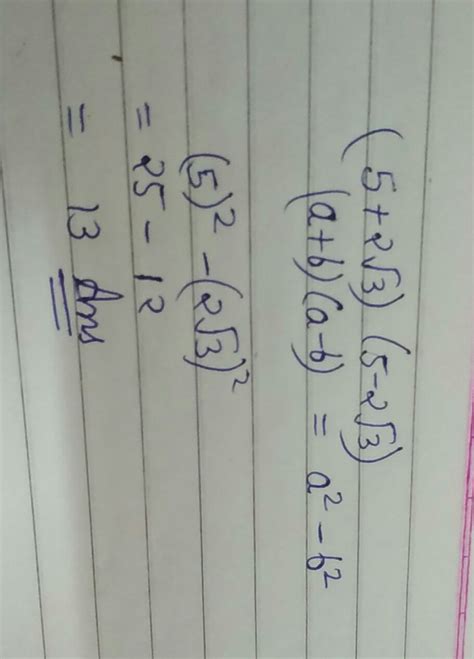 (5+2√3) (5-2√3)
(a+b) (a-b) = a² - b²
(5)² - (2√3)²
= 25 - 12
= 13 Ans